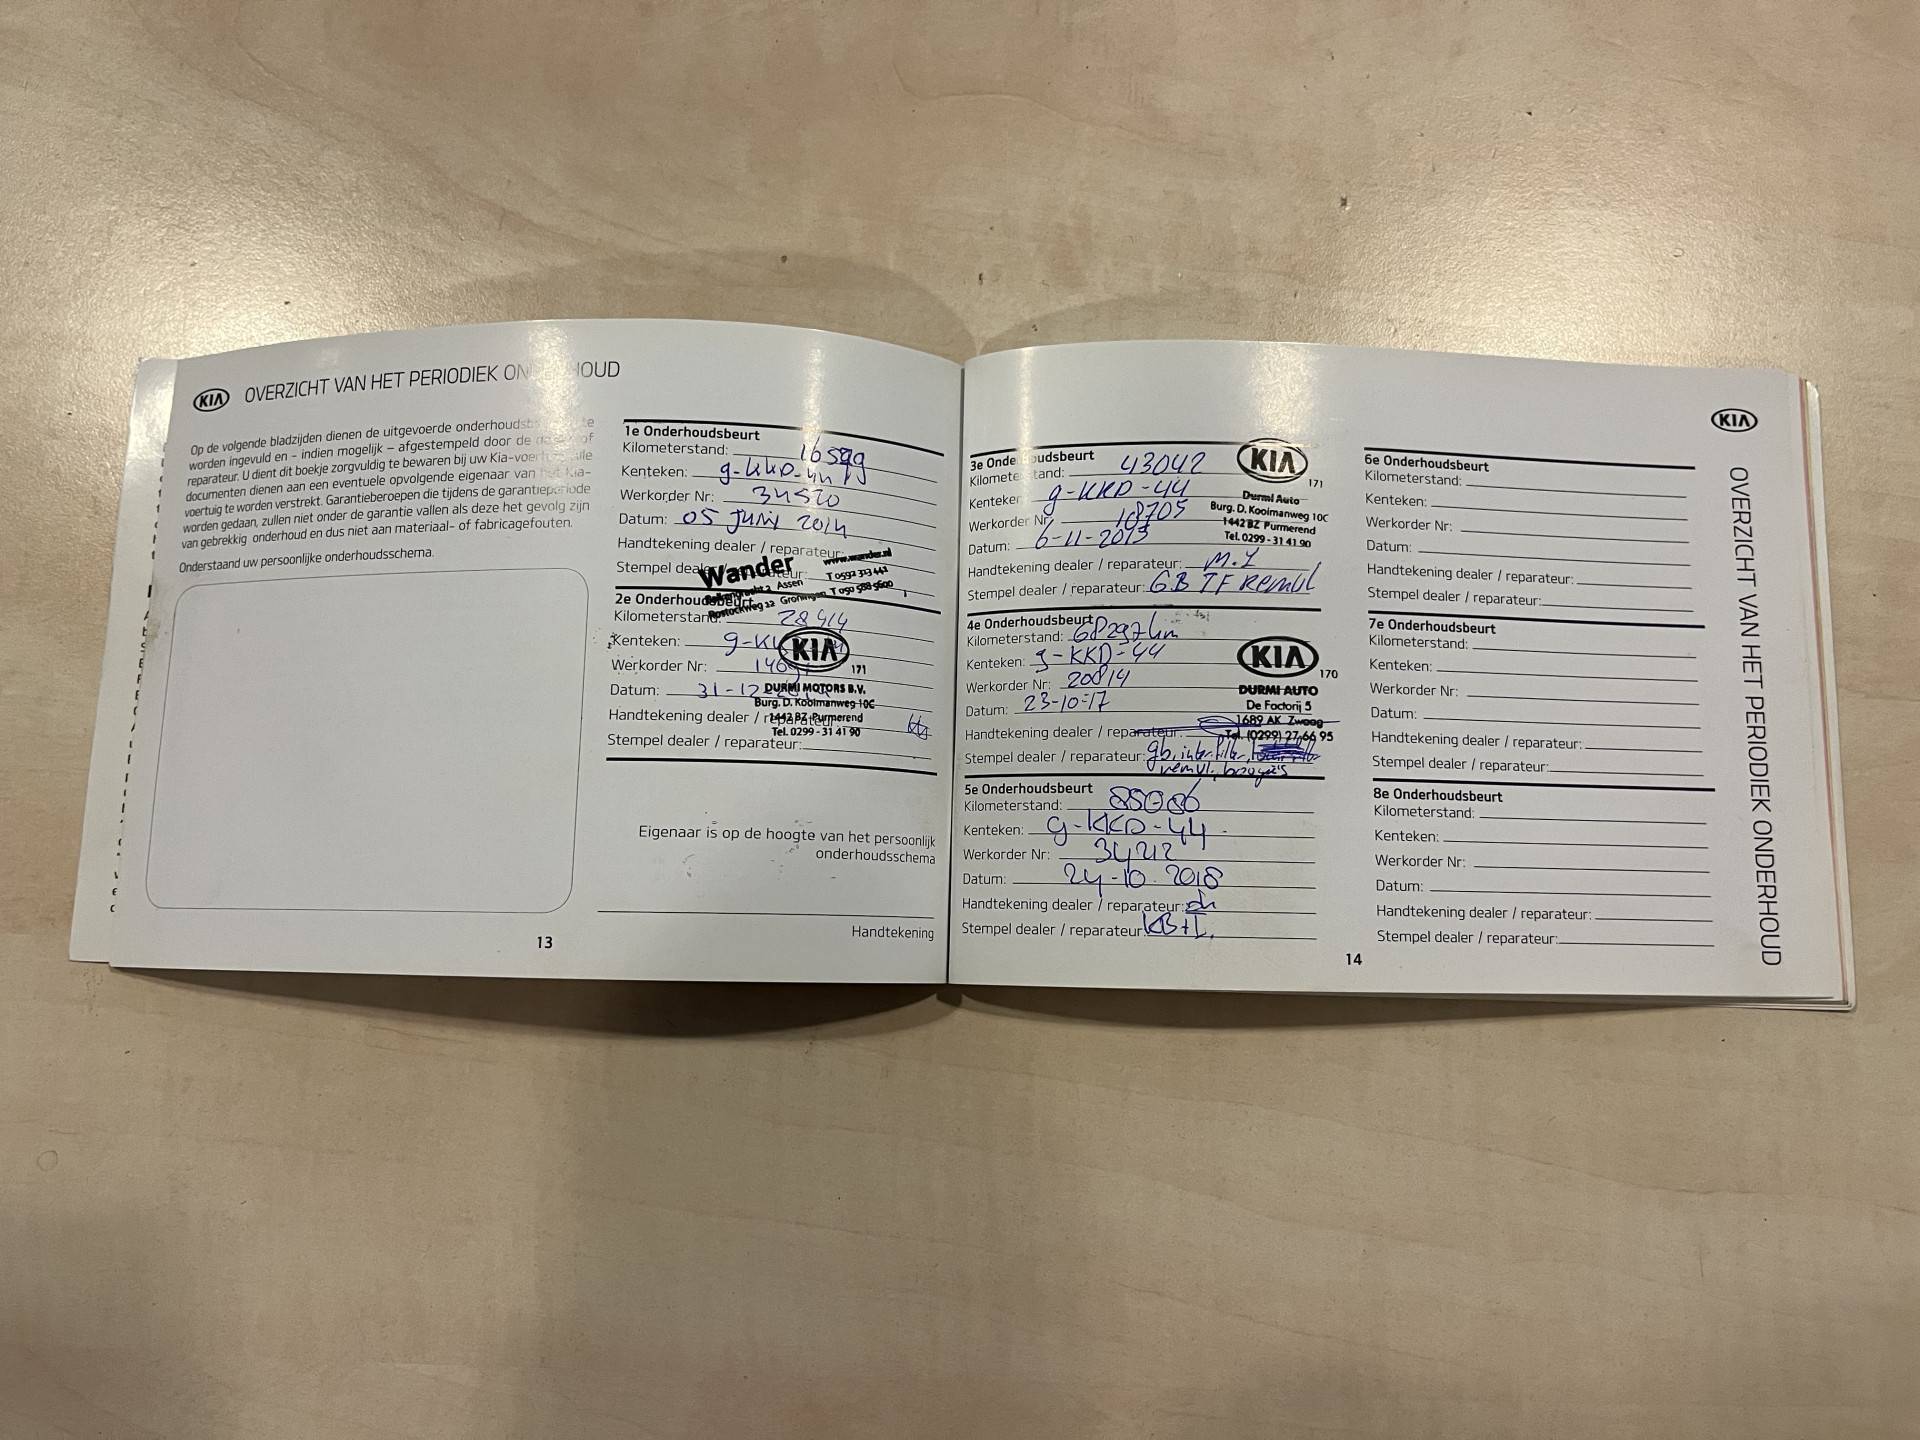 KIA OVERZICHT VAN HET PERIODIEK ONDERHOUD
Op de volgende bladzijden dienen de uitgevoerde
worden ingevuld en - indien mogelijk - afgestempeld door de of
reparateur. U dient dit boekje zorgvuldig te bewaren bij uw Kia-
documenten dienen aan een eventuele opvolgende eigenaar van het Kia-
voertuig te worden verstrekt. Garantieberoepen die tijdens de garantieperiode
worden gedaan, zullen niet onder de garantie vallen als deze het gevolg zijn
van gebrekkig onderhoud en dus niet aan materiaal- of fabricagefouten.
Onderstaand uw persoonlijke onderhoudsschema.
13
1e Onderhoudsbeurt
Kilometerstand:
Kenteken: g-KKD-44
Werkorder Nr: 34520
Datum: 05 juni 2014
Handtekening dealer / reparateur:
Stempel dealer / reparateur:
Wander www.wander.nl
Assen T 0592 313 442
Rostockweg 12 Groningen T 050 588 5600
2e Onderhoudsbeurt
Kilometerstand: 28414
Kenteken: g-KK
Werkorder Nr:
Datum: 31-12
Handtekening dealer / reparateur:
Stempel dealer / reparateur:
KIA
171
DURMI MOTORS B.V.
Burg. D. Kooimanweg 10C
1442 BZ Purmerend
Tel. 0299 - 31 41 90
Eigenaar is op de hoogte van het persoonlijk
onderhoudsschema
Handtekening
3e Onderhoudsbeurt
Kilometerstand: 43042
Kenteken: g-KKD-44
Werkorder Nr: 18705
Datum: 6-11-2015
Handtekening dealer / reparateur: M.Y
Stempel dealer / reparateur: G.B IF Remvl
KIA
171
Durmi Auto
Burg. D. Kooimanweg 10C
1442 BZ Purmerend
Tel. 0299 - 31 41 90
4e Onderhoudsbeurt
Kilometerstand: 68297km
Kenteken: g-KKD-44
Werkorder Nr: 20814
Datum: 23-10-17
Handtekening dealer / reparateur:
Stempel dealer / reparateur: gb, interfilter,
remvl, bougie's
KIA
170
DURMI AUTO
De Factorij 5
1689 AK Zwaag
Tel. (0299) 27 66 95
5e Onderhoudsbeurt
Kilometerstand: 85086
Kenteken: g-KKD-44
Werkorder Nr: 34212
Datum: 24-10-2018
Handtekening dealer / reparateur:
Stempel dealer / reparateur: KB+I
14
6e Onderhoudsbeurt
Kilometerstand:
Kenteken:
Werkorder Nr:
Datum:
Handtekening dealer / reparateur:
Stempel dealer / reparateur:
7e Onderhoudsbeurt
Kilometerstand:
Kenteken:
Werkorder Nr:
Datum:
Handtekening dealer / reparateur:
Stempel dealer / reparateur:
8e Onderhoudsbeurt
Kilometerstand:
Kenteken:
Werkorder Nr:
Datum:
Handtekening dealer / reparateur:
Stempel dealer / reparateur:
KIA
OVERZICHT VAN HET PERIODIEK ONDERHOUD